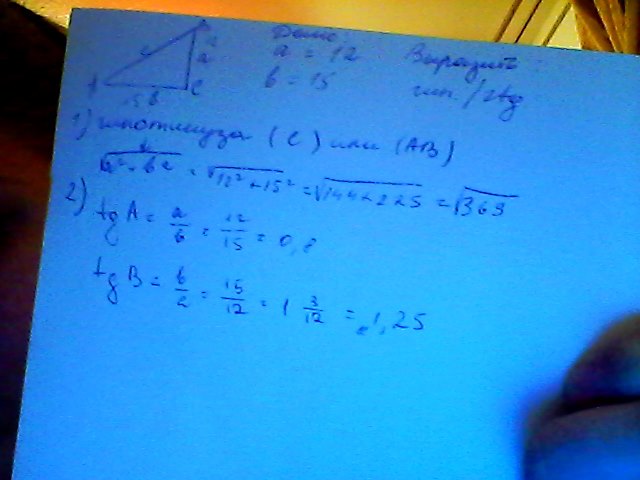 Дано:
a = 12
b = 15
Выразить:
гип. / 2tg
A
c
a
C
15 b
1) гипотенуза (c) или (AB)
√a²+b² = √12²+15² = √144+225 = √369
2)
tg A = a/b = 12/15 = 0,8
tg B = b/a = 15/12 = 1 3/12 = 1,25